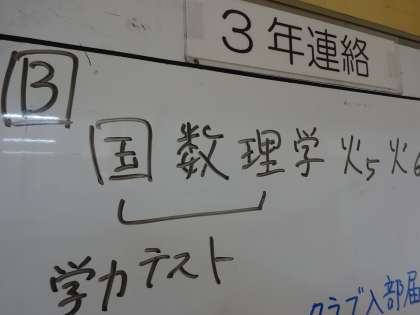 3年連絡
B
国 数 理 学 火5 火6
学力テスト
クラブ入部届